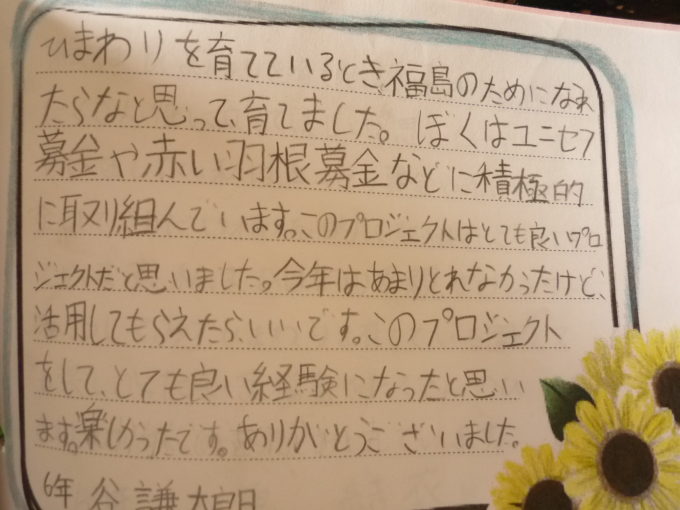 ひまわりを育てているとき、福島のためになれ
たらなと思って、育てました。ぼくはユニセフ
募金や赤い羽根募金などに積極的
に取り組んでいます。このプロジェクトはとても良いプロ
ジェクトだと思いました。今年はあまりとれなかったけど、
活用してもらえたら、いいです。このプロジェクト
をして、とても良い経験になったと思い
ます。楽しかったです。ありがとうございました。
6年 谷 謙太朗